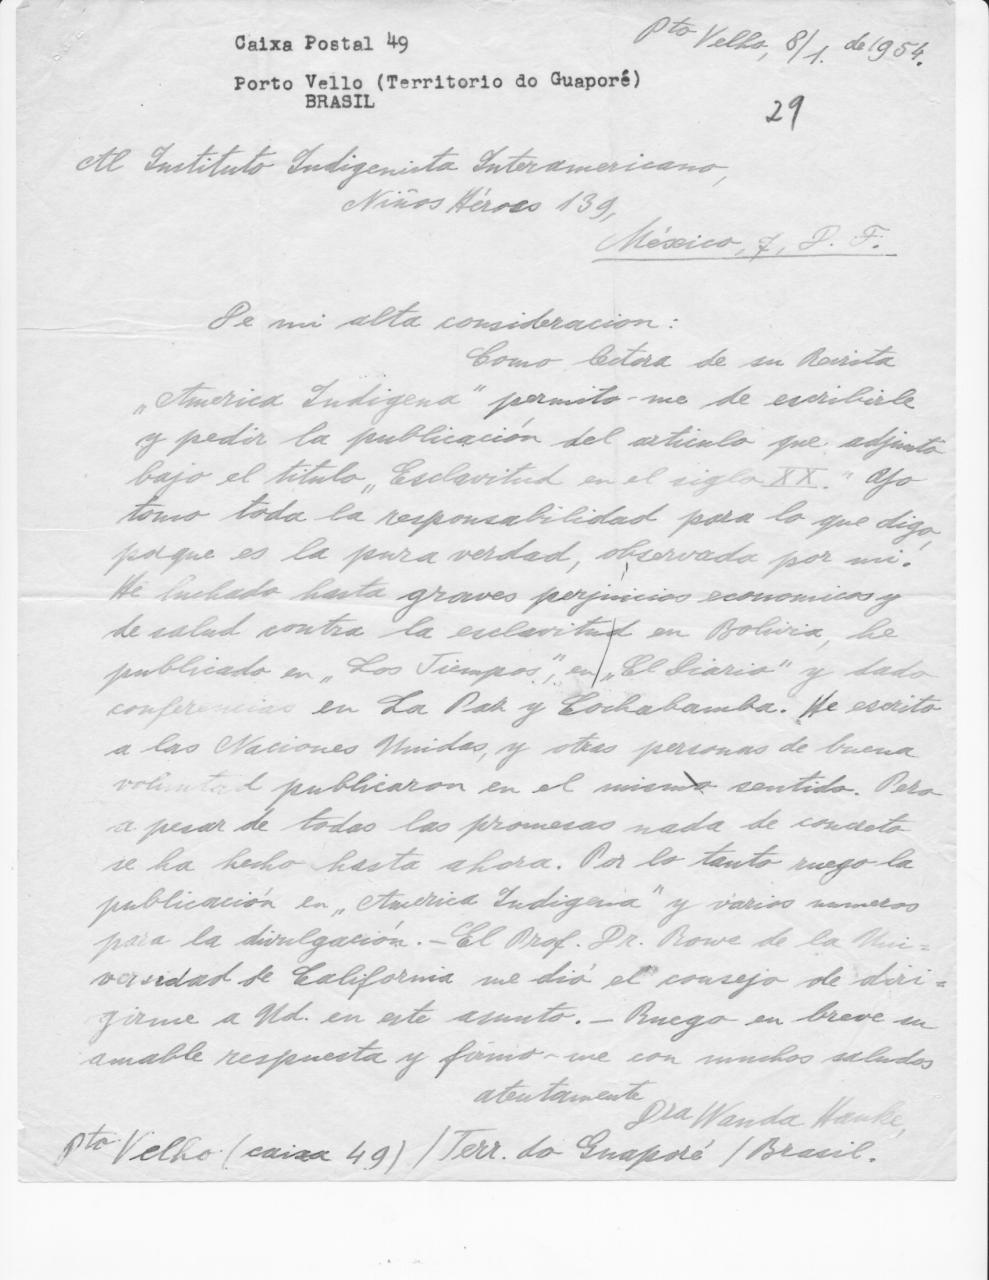 Caixa Postal 49
Pto Velho, 8/1. de 1954.
Porto Vello (Territorio do Guaporé)
BRASIL
29
Al Instituto Indigenista Interamericano,
Niños Héroes 139,
México, 7, D. F.
De mi alta consideracion:
Como lectora de su Revista
„America Indigena" permito-me de escribirle
y pedir la publicación del articulo que adjunto
bajo el titulo „Esclavitud en el siglo XX." Yo
tomo toda la responsabilidad para lo que digo,
porque es la pura verdad, observada por mi.
He luchado hasta graves perjuicios economicos y
de salud contra la esclavitud en Bolivia, he
publicado en „Los Tiempos", en „El Diario" y dado
conferencias en La Paz y Cochabamba. He escrito
a las Naciones Unidas, y otras personas de buena
voluntad publicaron en el mismo sentido. Pero
a pesar de todas las promesas nada de concreto
se ha hecho hasta ahora. Por lo tanto ruego la
publicación en „America Indigena" y varios numeros
para la divulgación. – El Prof. Dr. Rowe de la Uni=
versidad de California me dió el consejo de diri=
girme a Ud. en este asunto. – Ruego en breve su
amable respuesta y firmo-me con muchos saludos
atentamente
Dra Wanda Hanke,
Pto Velho (caixa 49) / Terr. do Guaporé / Brasil.